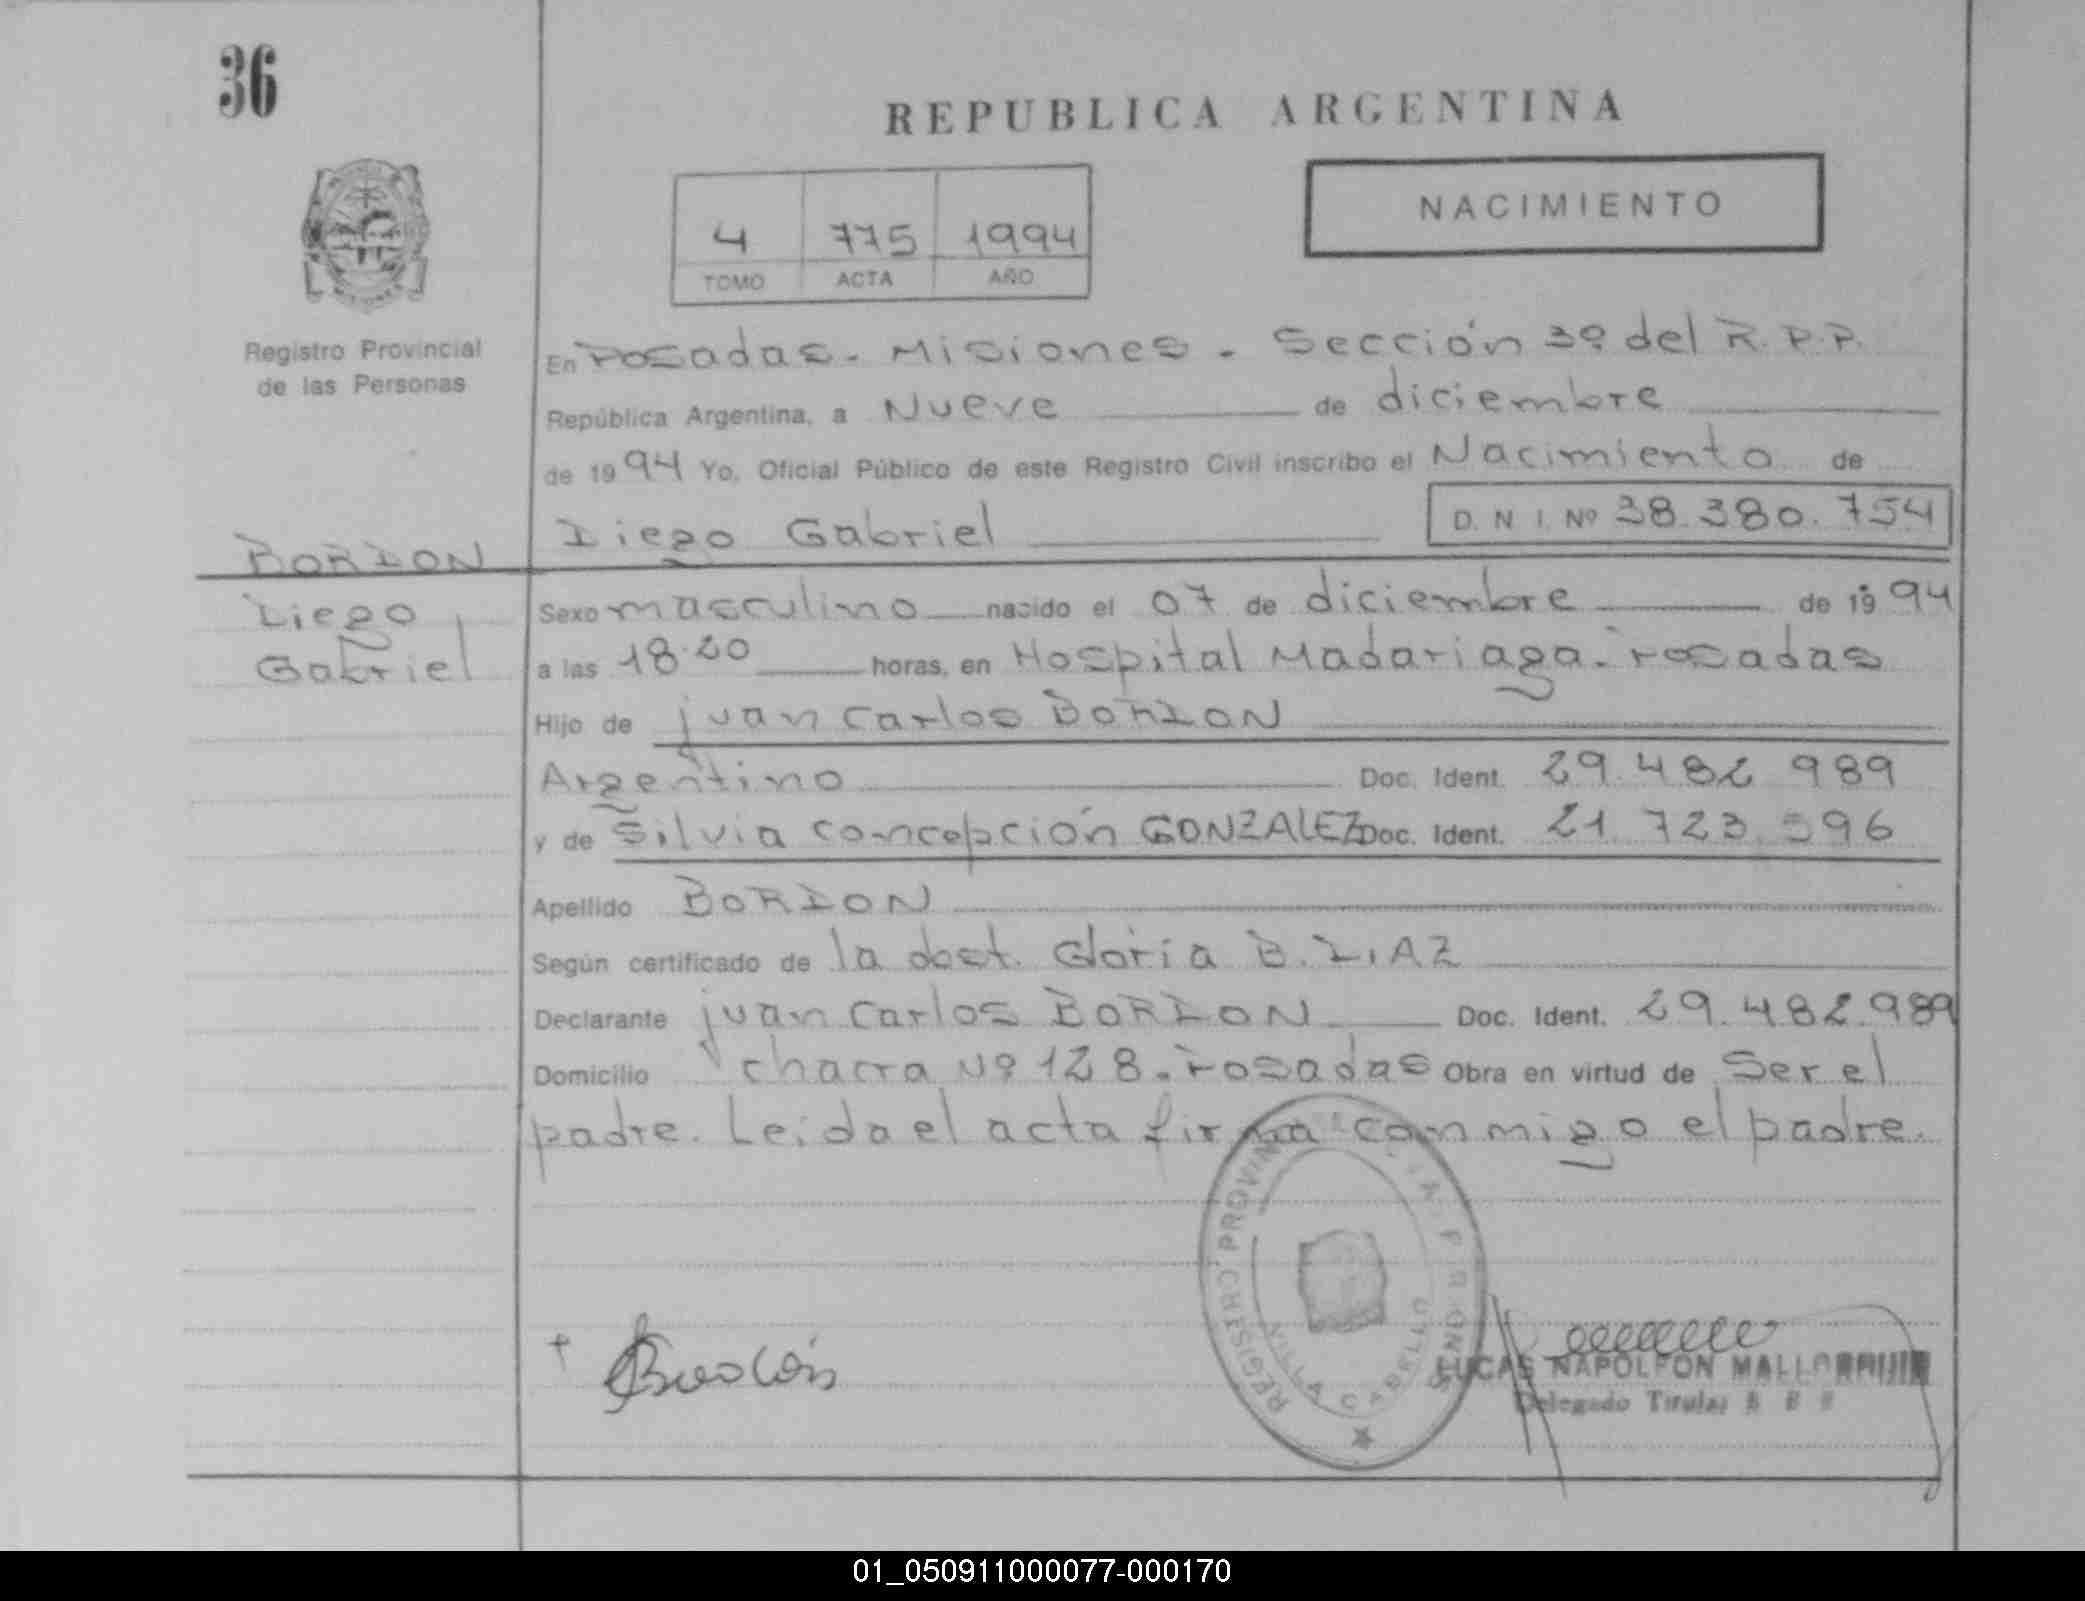 36
REPUBLICA ARGENTINA
NACIMIENTO
4 775 1994
TOMO ACTA AÑO
Registro Provincial
de las Personas
En Posadas - Misiones - Sección 3º del R.P.P.
República Argentina, a Nueve de diciembre
de 1994 Yo, Oficial Público de este Registro Civil inscribo el Nacimiento de
Diego Gabriel D. N. I. Nº 38.380.754
BORDON
Diego
Gabriel
Sexo masculino nacido el 07 de diciembre de 1994
a las 18.20 horas, en Hospital Madariaga - Posadas
Hijo de Juan Carlos BORDON
Argentino Doc. Ident. 29.482.989
y de Silvia Concepción GONZALEZ Doc. Ident. 21.723.596
Apellido BORDON
Según certificado de la obst. Gloria B. DIAZ
Declarante Juan Carlos BORDON Doc. Ident. 29.482.989
Domicilio chacra Nº 128 - Posadas Obra en virtud de Ser el
padre. Leida el acta firma conmigo el padre.
REGISTRO PROVINCIAL
VILLA CABELLO
Bordón
LUCAS NAPOLEON
Delegado Titular
01_050911000077-000170